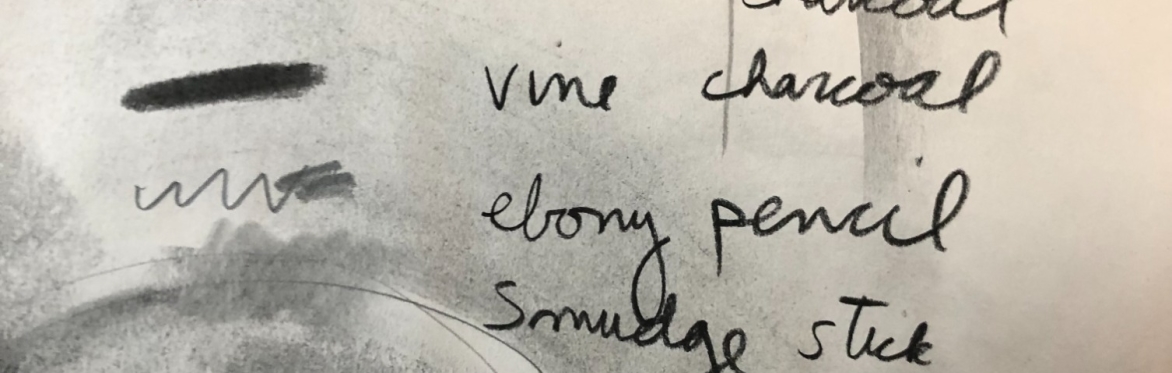 charcoal
vine charcoal
ebony pencil
Smudge stick